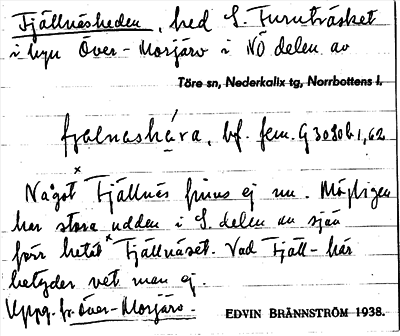 Fjällnäsheden, hed S. Furuträsket
i byn Över-Morjärv i NÖ delen av
Töre sn, Nederkalix tg, Norrbottens l.
fjalnashära, bf. fem. G3080b1,62
Något ˣFjällnäs finns ej nu. Möjligen
har stora udden i S. delen av sjön
förr hetat ˣFjällnäset. Vad Fjäll- här
betyder vet man ej.
Uppg. fr. Över-Morjärv.
EDVIN BRÄNNSTRÖM 1938.